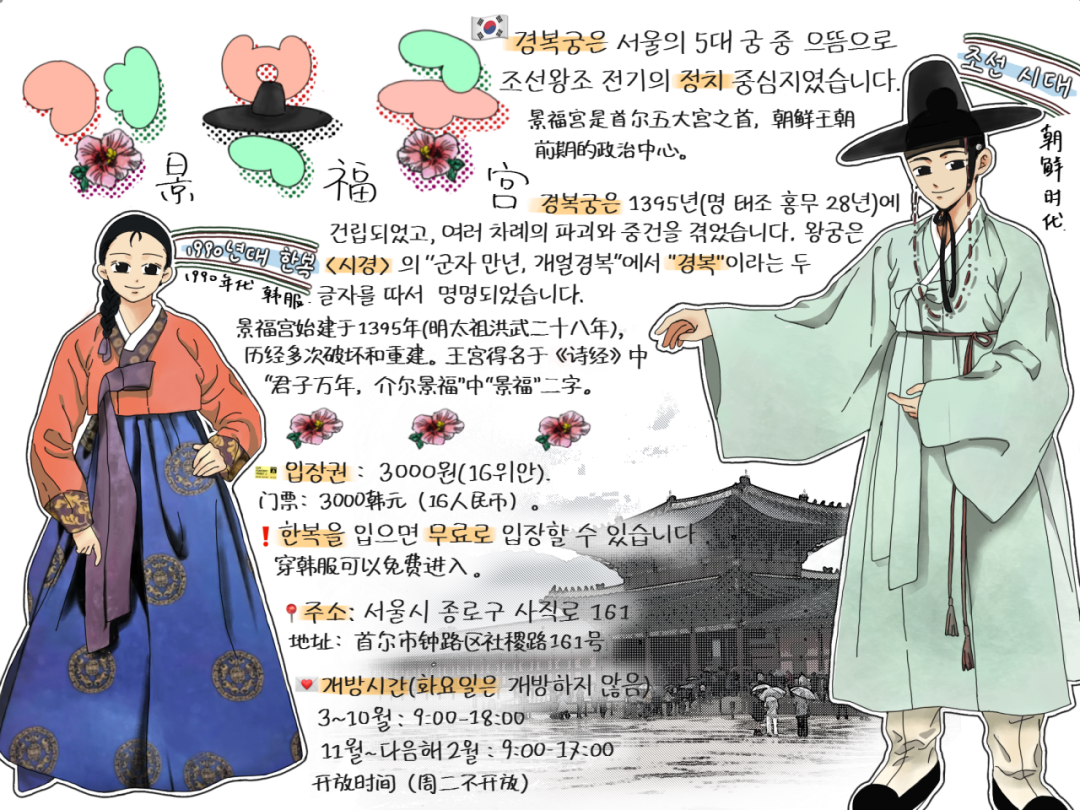 경복궁은 서울의 5대 궁 중 으뜸으로
조선왕조 전기의 정치 중심지였습니다.
景福宫是首尔五大宫之首，朝鲜王朝
前期的政治中心。
조선 시대
朝鲜时代
景 福 宫
경복궁은 1395년(명 태조 홍무 28년)에
건립되었고, 여러 차례의 파괴와 중건을 겪었습니다. 왕궁은
〈시경〉의 "군자 만년, 개얼경복"에서 "경복"이라는 두
글자를 따서 명명되었습니다.
1990년대 한복
1990年代 韩服.
景福宫始建于1395年(明太祖洪武二十八年)，
历经多次破坏和重建。王宫得名于《诗经》中
"君子万年，介尔景福"中"景福"二字。
입장권 : 3000원(16위안).
门票：3000韩元（16人民币）。
❗한복을 입으면 무료로 입장할 수 있습니다.
穿韩服可以免费进入。
📍주소: 서울시 종로구 사직로 161
地址：首尔市钟路区社稷路161号
개방시간(화요일은 개방하지 않음)
3~10월 : 9:00-18:00
11월~다음해 2월 : 9:00-17:00
开放时间（周二不开放）